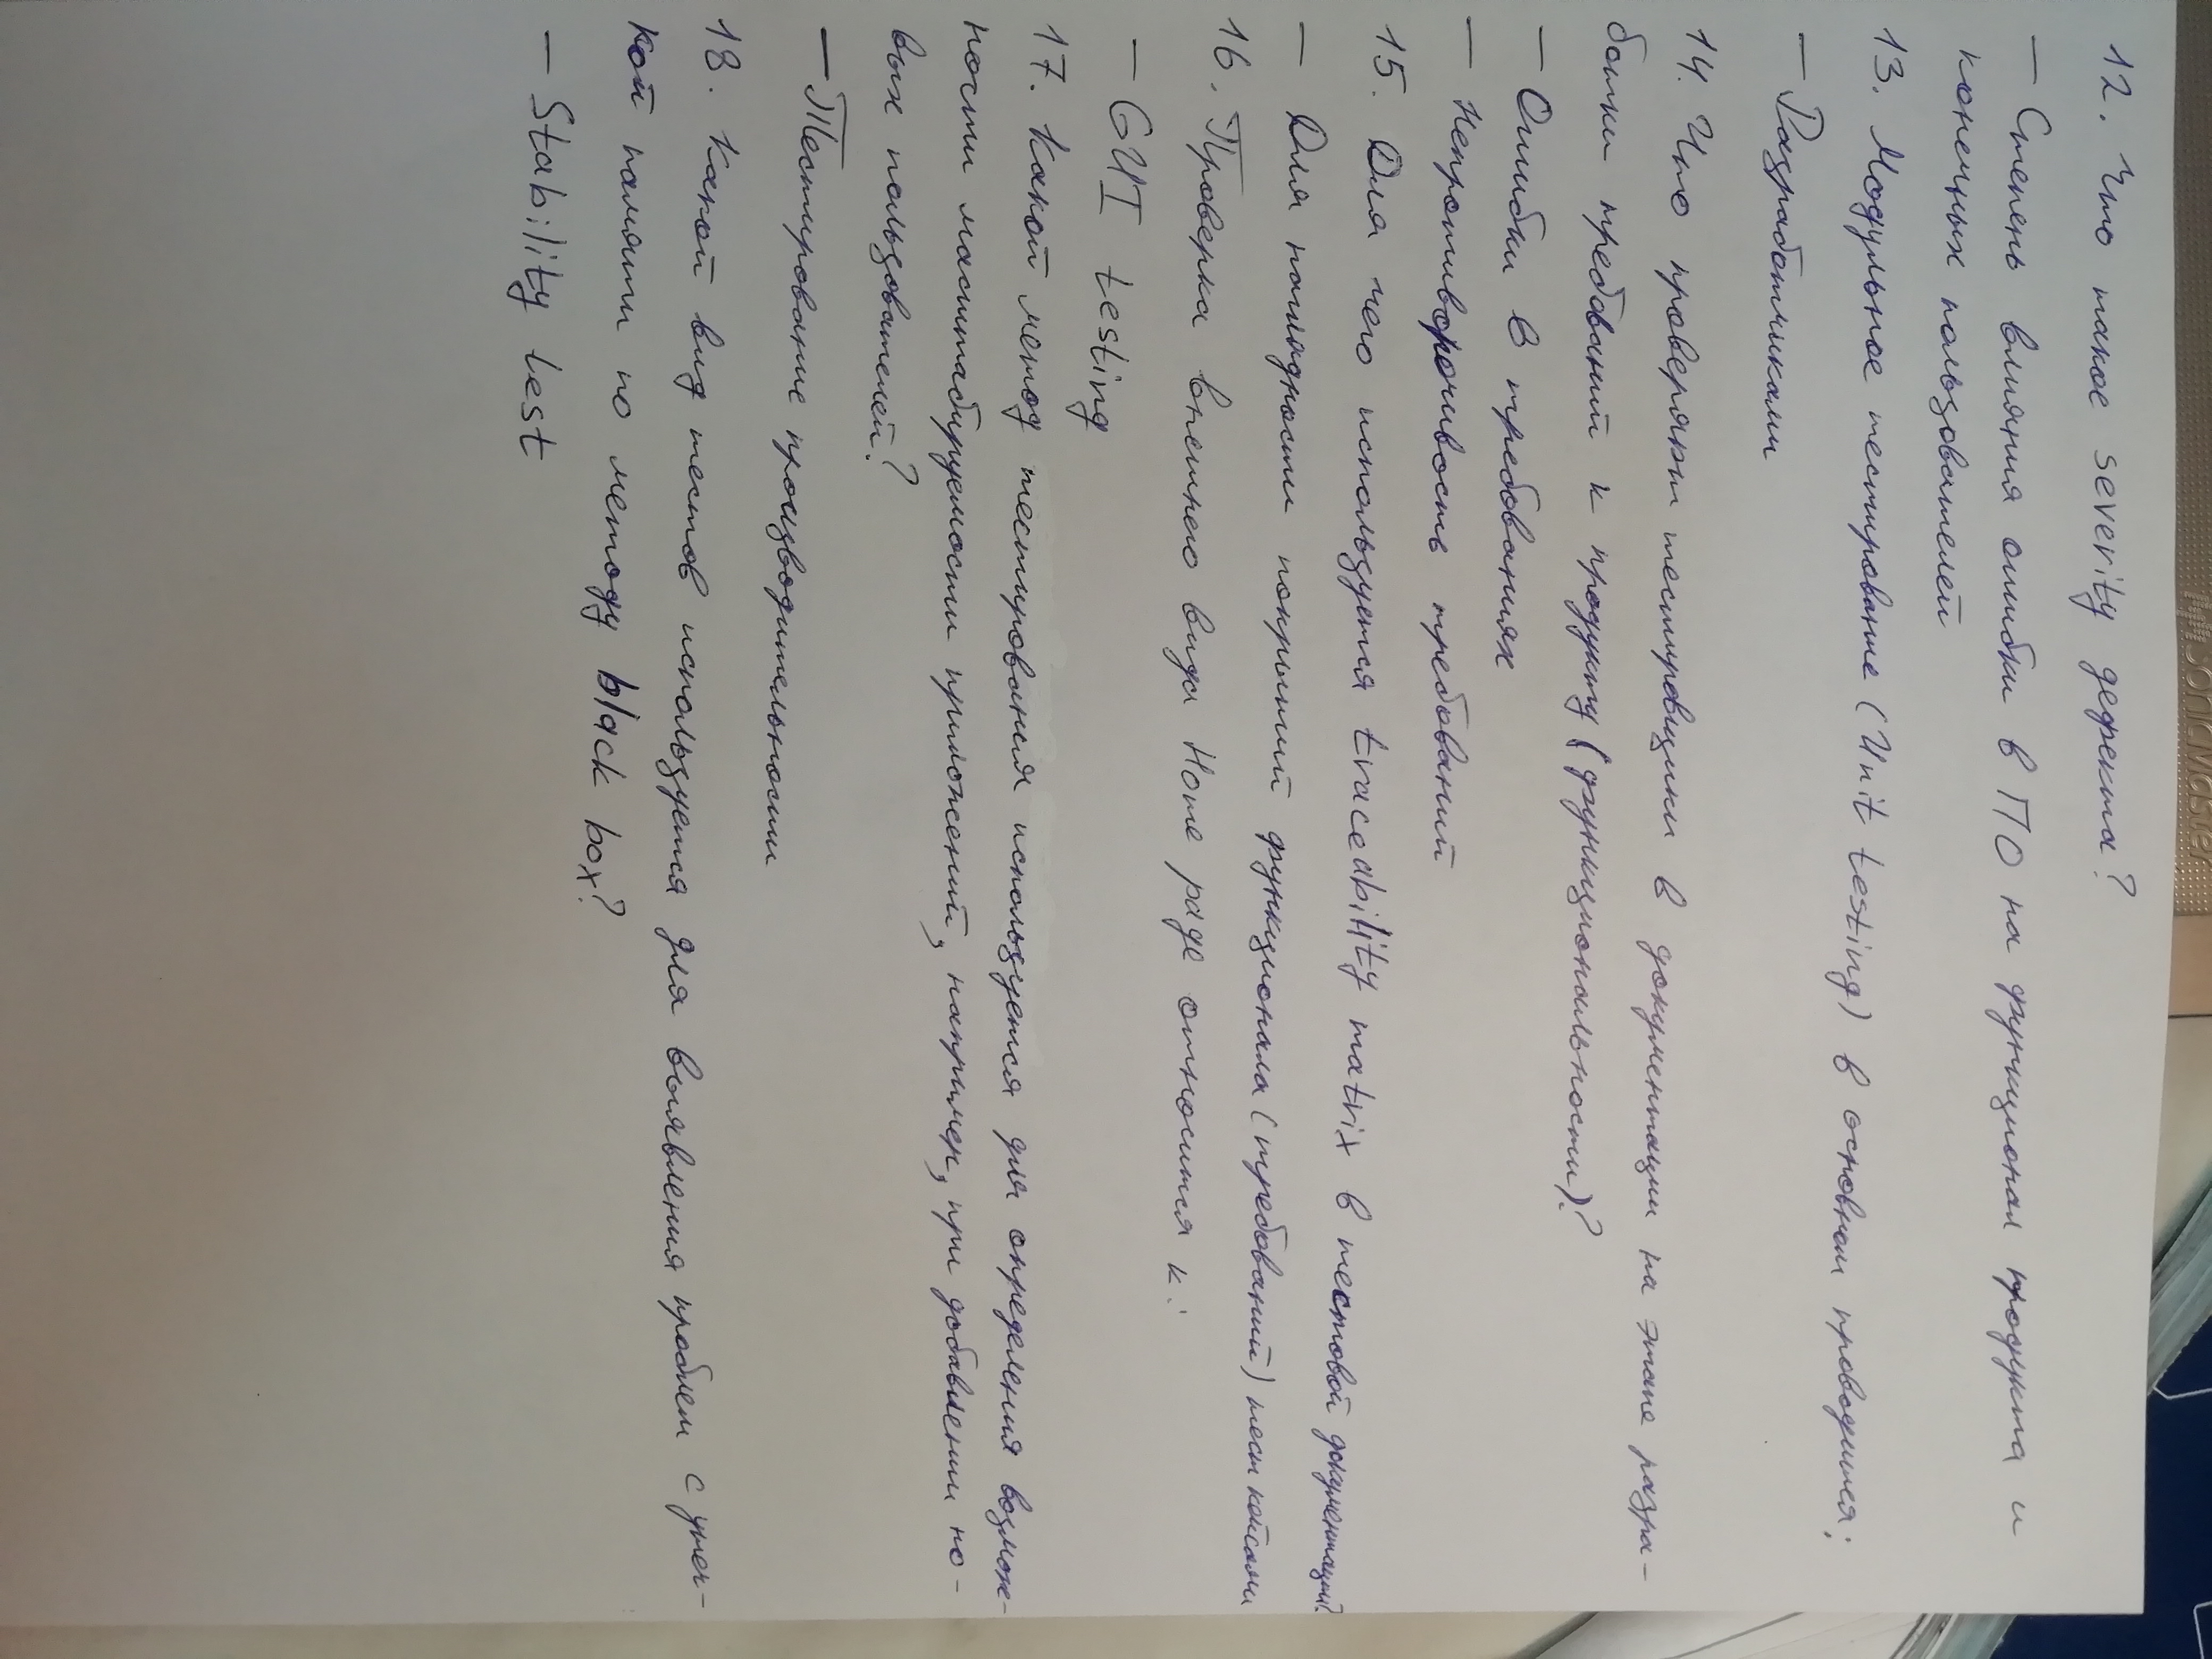 SonicMaster
12. Что такое severity дефекта?
— Степень влияния ошибки в ПО на функционал продукта и
конечных пользователей
13. Модульное тестирование (Unit testing) в основном проводится:
— Разработчиками
14. Что проверяют тестировщики в документации на этапе разра-
ботки требований к продукту (функциональности)?
— Ошибки в требованиях
— Непротиворечивость требований
15. Для чего используется traceability matrix в тестовой документации?
— Для наглядности покрытий функционала (требований) тест кейсами
16. Проверка внешнего вида Home page относится к:
— GUI testing
17. Какой метод тестирования используется для определения возмож-
ности масштабируемости приложений, например, при добавлении но-
вых пользователей?
— Тестирование производительности
18. Какой вид тестов используется для выявления проблем с утеч-
кой памяти по методу black box?
— Stability test